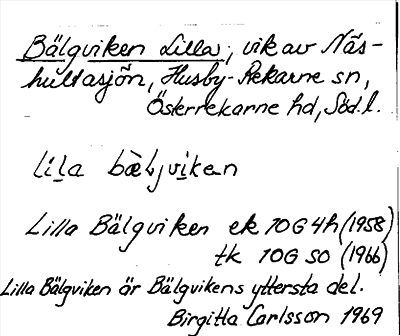 Bälgviken Lilla, vik av Näs-
hultasjön, Husby-Rekarne sn,
Österrekarne hd, Söd.l.
lila bæljviken
Lilla Bälgviken ek 10G 4h (1958)
tk 10G SO (1966)
Lilla Bälgviken är Bälgvikens yttersta del.
Birgitta Carlsson 1969